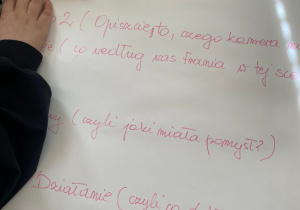 2 (Opiszcie to, czego kamera
(co według was Frania w tej
(czyli jaki miała pomysł?)
Działanie (czyli co